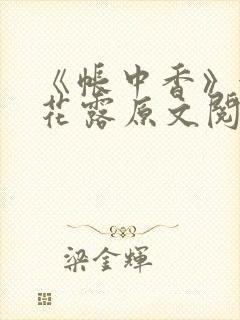 《帐中香》
花露原文阅
梁金輝